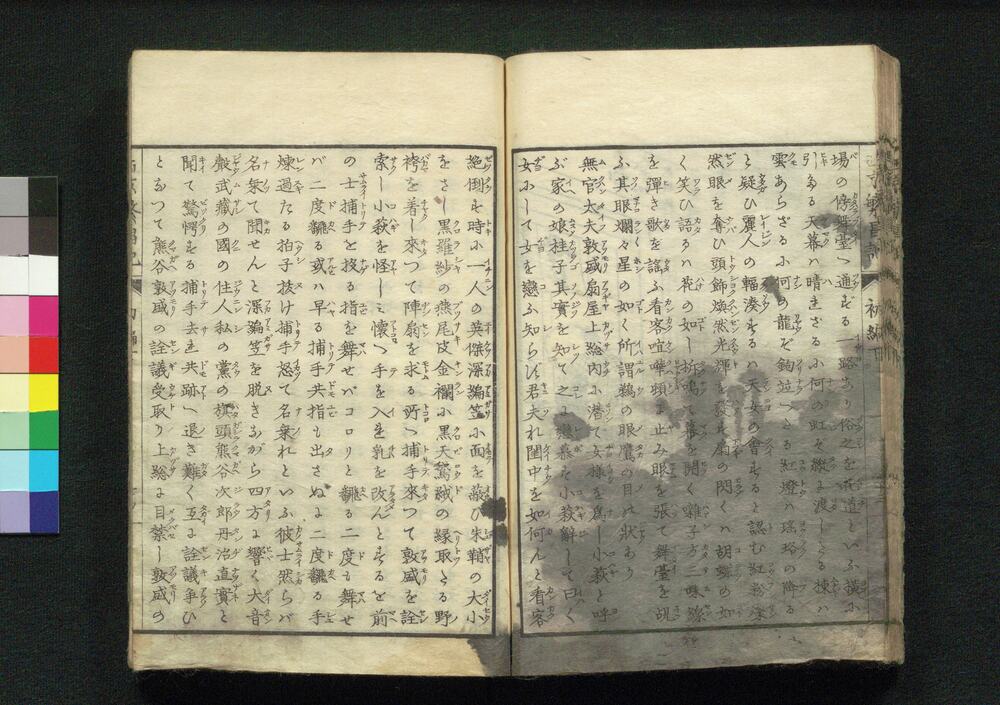 場の傍舞臺へ通ずる一路あり俗之を花道といふ横に
引たる天幕ハ晴きざるに何の虹を繰り渡したる棟ハ
雲あらざるに何の龍を釣並べたる紅燈ハ瑤珞の降る
と疑ひ麗人の輻湊するハ天女の會すると認む紅粉燦
然眼を奪ひ頭飾煥然光輝を發す扇の閃く胡蝶の如
く笑ひ語るハ花の如し柝鳴て幕を開く囃子方三味線
を彈き歌を謠ふ看客喧嘩頓ま止み眼を張て舞臺を覘
ふ其眼爛々星の如く所謂鵜の眼鷹の目の状あり
無官太夫敦盛扇屋上総内に潜て女様を爲し小萩と呼
ぶ家の娘桂子其實を知て之に戀慕す小萩辭して曰く
女にして女を戀ふ知らず君夫れ閨中を如何んと看客
絶倒す時小一人の英傑深編笠に面を蔽ひ朱鞘の大小
をさし黒羅紗の燕尾皮金襴に黒天鵞絨の縁取たる野
袴を着し來つて陣扇を求る所へ捕手來つて敦盛を詮
索し小萩を怪しミ懷へ手を入連乳を改んとするを前
の士捕手を投る指を舞せバコロリと翻る二度も舞せ
バ二度翻る或ハ早る捕手共指も出さぬよ二度翻る手
煉過たる拍子抜け捕手怒て名乗れといふ彼士然らバ
名乗て聞せんと深編笠を脱きながら四方よ響く大音
聲武藏の國の住人私の黨の旗頭熊谷次郎丹治直實と
聞て驚愕する捕手去連共跡へ退き難く互よ詮議争ひ
となつて熊谷敦盛の詮議受取り上総よ目禁し敦盛の